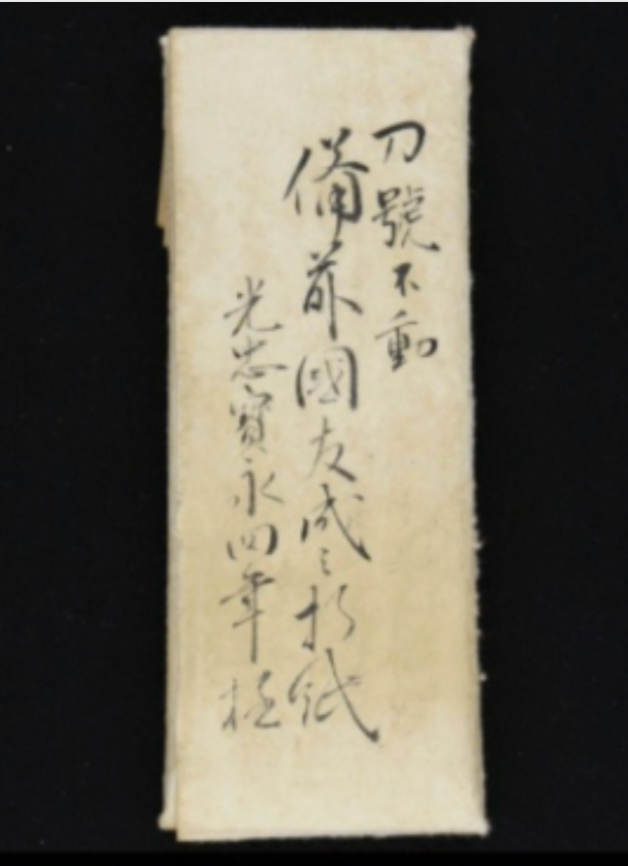 刀號不動
備前國友成之折紙
光忠寶永四年極